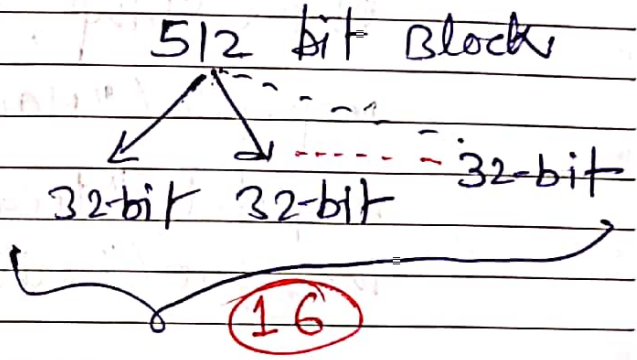 512 bit Block
32-bit 32-bit 32-bit
16